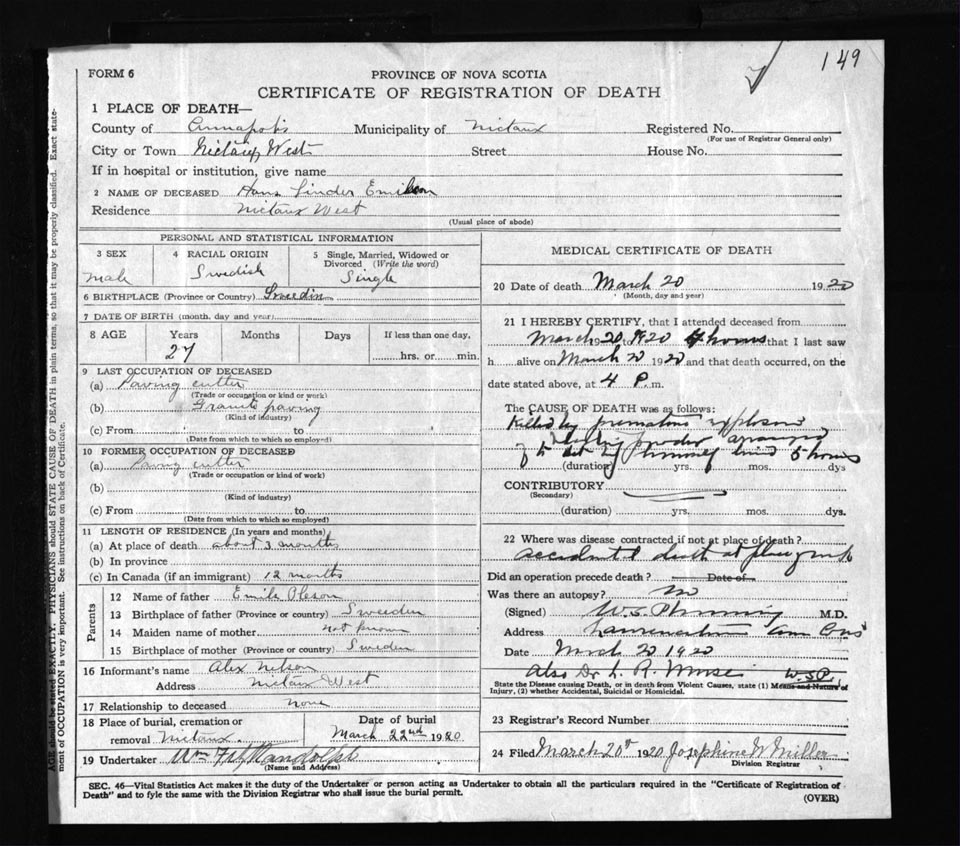 149
FORM 6
PROVINCE OF NOVA SCOTIA
CERTIFICATE OF REGISTRATION OF DEATH
1 PLACE OF DEATH—
County of Annapolis Municipality of Nictaux Registered No.
(For use of Registrar General only)
City or Town Nictaux West Street House No.
If in hospital or institution, give name
2 NAME OF DECEASED Hans Linder Emilson
Residence Nictaux West
(Usual place of abode)
PERSONAL AND STATISTICAL INFORMATION
3 SEX 4 RACIAL ORIGIN 5 Single, Married, Widowed or Divorced (Write the word)
male Swedish Single
6 BIRTHPLACE (Province or Country) Sweedin
7 DATE OF BIRTH (month, day and year)
8 AGE Years Months Days If less than one day,
27 hrs. or min.
9 LAST OCCUPATION OF DECEASED
(a) Paving cutter
(Trade or occupation or kind or work)
(b) Granite paving
(Kind of industry)
(c) From to
(Date from which to which so employed)
10 FORMER OCCUPATION OF DECEASED
(a) Paving cutter
(Trade or occupation or kind of work)
(b)
(Kind of industry)
(c) From to
(Date from which to which so employed)
11 LENGTH OF RESIDENCE (In years and months)
(a) At place of death about 3 months
(b) In province
(c) In Canada (if an immigrant) 12 months
Parents
12 Name of father Emile Oleson
13 Birthplace of father (Province or country) Sweeden
14 Maiden name of mother not known
15 Birthplace of mother (Province or country) Sweden
16 Informant's name Alex Nelson
Address Nictaux West
17 Relationship to deceased none
18 Place of burial, cremation or removal Nictaux Date of burial March 22nd 1920
19 Undertaker Wm Randolph
(Name and Address)
MEDICAL CERTIFICATE OF DEATH
20 Date of death March 20 1920
(Month, day and year)
21 I HEREBY CERTIFY, that I attended deceased from
March 20 to 1920 4 hours that I last saw
h alive on March 20 1920 and that death occurred, on the
date stated above, at 4 P. m.
The CAUSE OF DEATH was as follows:
Killed by premature explosion
of powder arranged
by himself lived 5 hours
(duration) yrs. mos. dys
CONTRIBUTORY
(Secondary)
(duration) yrs. mos. dys.
22 Where was disease contracted if not at place of death?
accidental death at place
Did an operation precede death? Date of
Was there an autopsy? no
(Signed) W. S. Phinney M.D.
Address Lawrencetown Ann Co
Date March 20 1920
also Dr L. R. Morse W.S.P.
State the Disease causing Death, or in death from Violent Causes, state (1) Means and Nature of Injury, (2) whether Accidental, Suicidal or Homicidal.
23 Registrar's Record Number
24 Filed March 20th 1920 Josephine W Miller
Division Registrar
SEC. 46—Vital Statistics Act makes it the duty of the Undertaker or person acting as Undertaker to obtain all the particulars required in the "Certificate of Registration of
Death" and to fyle the same with the Division Registrar who shall issue the burial permit.
(OVER)
AGE should be stated EXACTLY. PHYSICIANS should STATE CAUSE OF DEATH in plain terms, so that it may be properly classified. Exact state-
ment of OCCUPATION is very important. See instructions on back of Certificate.